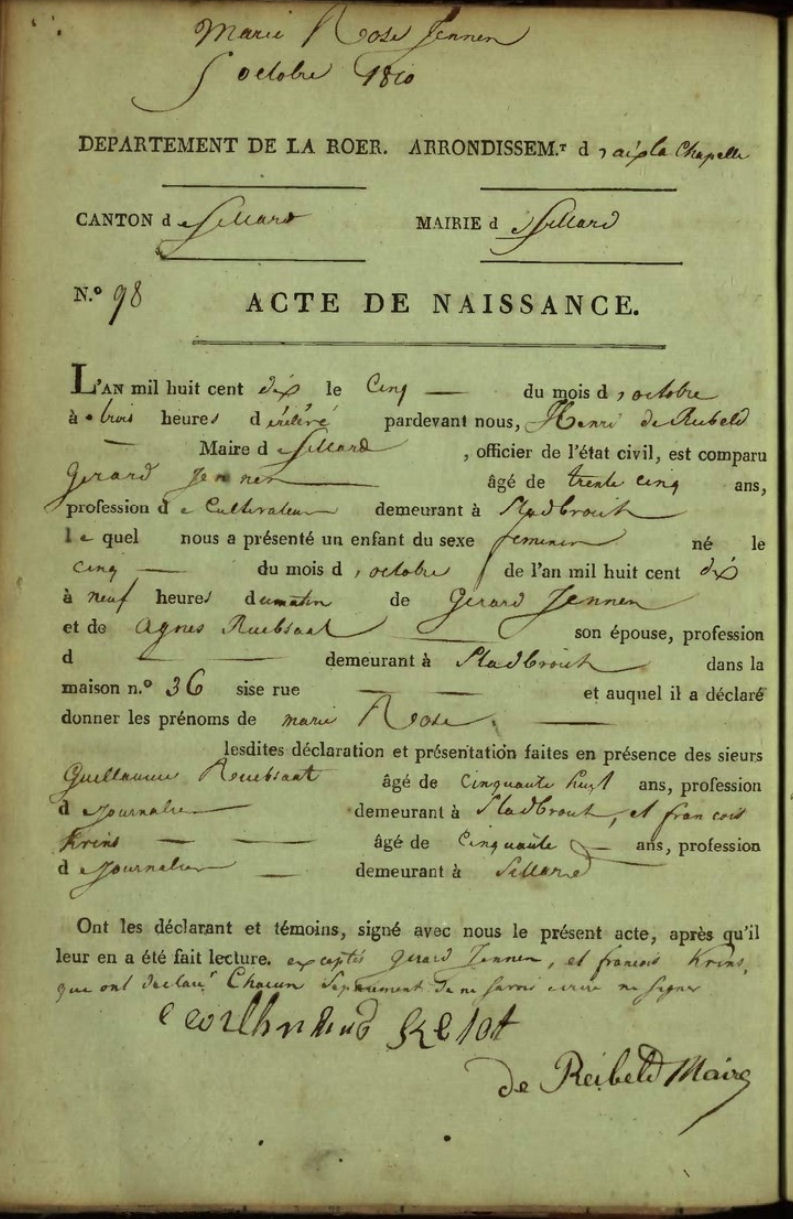 Marie Rose Jennen
5 octobre 1810
DEPARTEMENT DE LA ROER. ARRONDISSEM.T d'aix la Chapelle
CANTON de Sittard MAIRIE de Sittard
N.º 98 ACTE DE NAISSANCE.
L'AN mil huit cent dix le Cinq — du mois d'octobre
à trois heures pardevant nous, Henri de Reibeld
— Maire de Sittard, officier de l'état civil, est comparu
Gerard Jennen — âgé de trente cinq ans,
profession de Cultivateur demeurant à Stadbrouk
le quel nous a présenté un enfant du sexe feminin né le
cinq — du mois d'octobre de l'an mil huit cent dix
à neuf heures du matin de Gerard Jennen
et de Agnes Ruebsaat — son épouse, profession
d — demeurant à Stadbrouk dans la
maison n.º 36 sise rue — — et auquel il a déclaré
donner les prénoms de marie Rose. —
lesdites déclaration et présentation faites en présence des sieurs
Guillaume Ruebsaat âgé de Cinquante huit ans, profession
de Journalier — demeurant à Stadbrouk, et francois
Krins — — âgé de Cinquante — ans, profession
de Journalier — demeurant à Sittard
Ont les déclarant et témoins, signé avec nous le présent acte, après qu'il
leur en a été fait lecture. exceptés Gerard Jennen, et francois Krins,
que ont declaré Chacun Separement de ne savoir ecrire ne signer
de Reibeld Maire